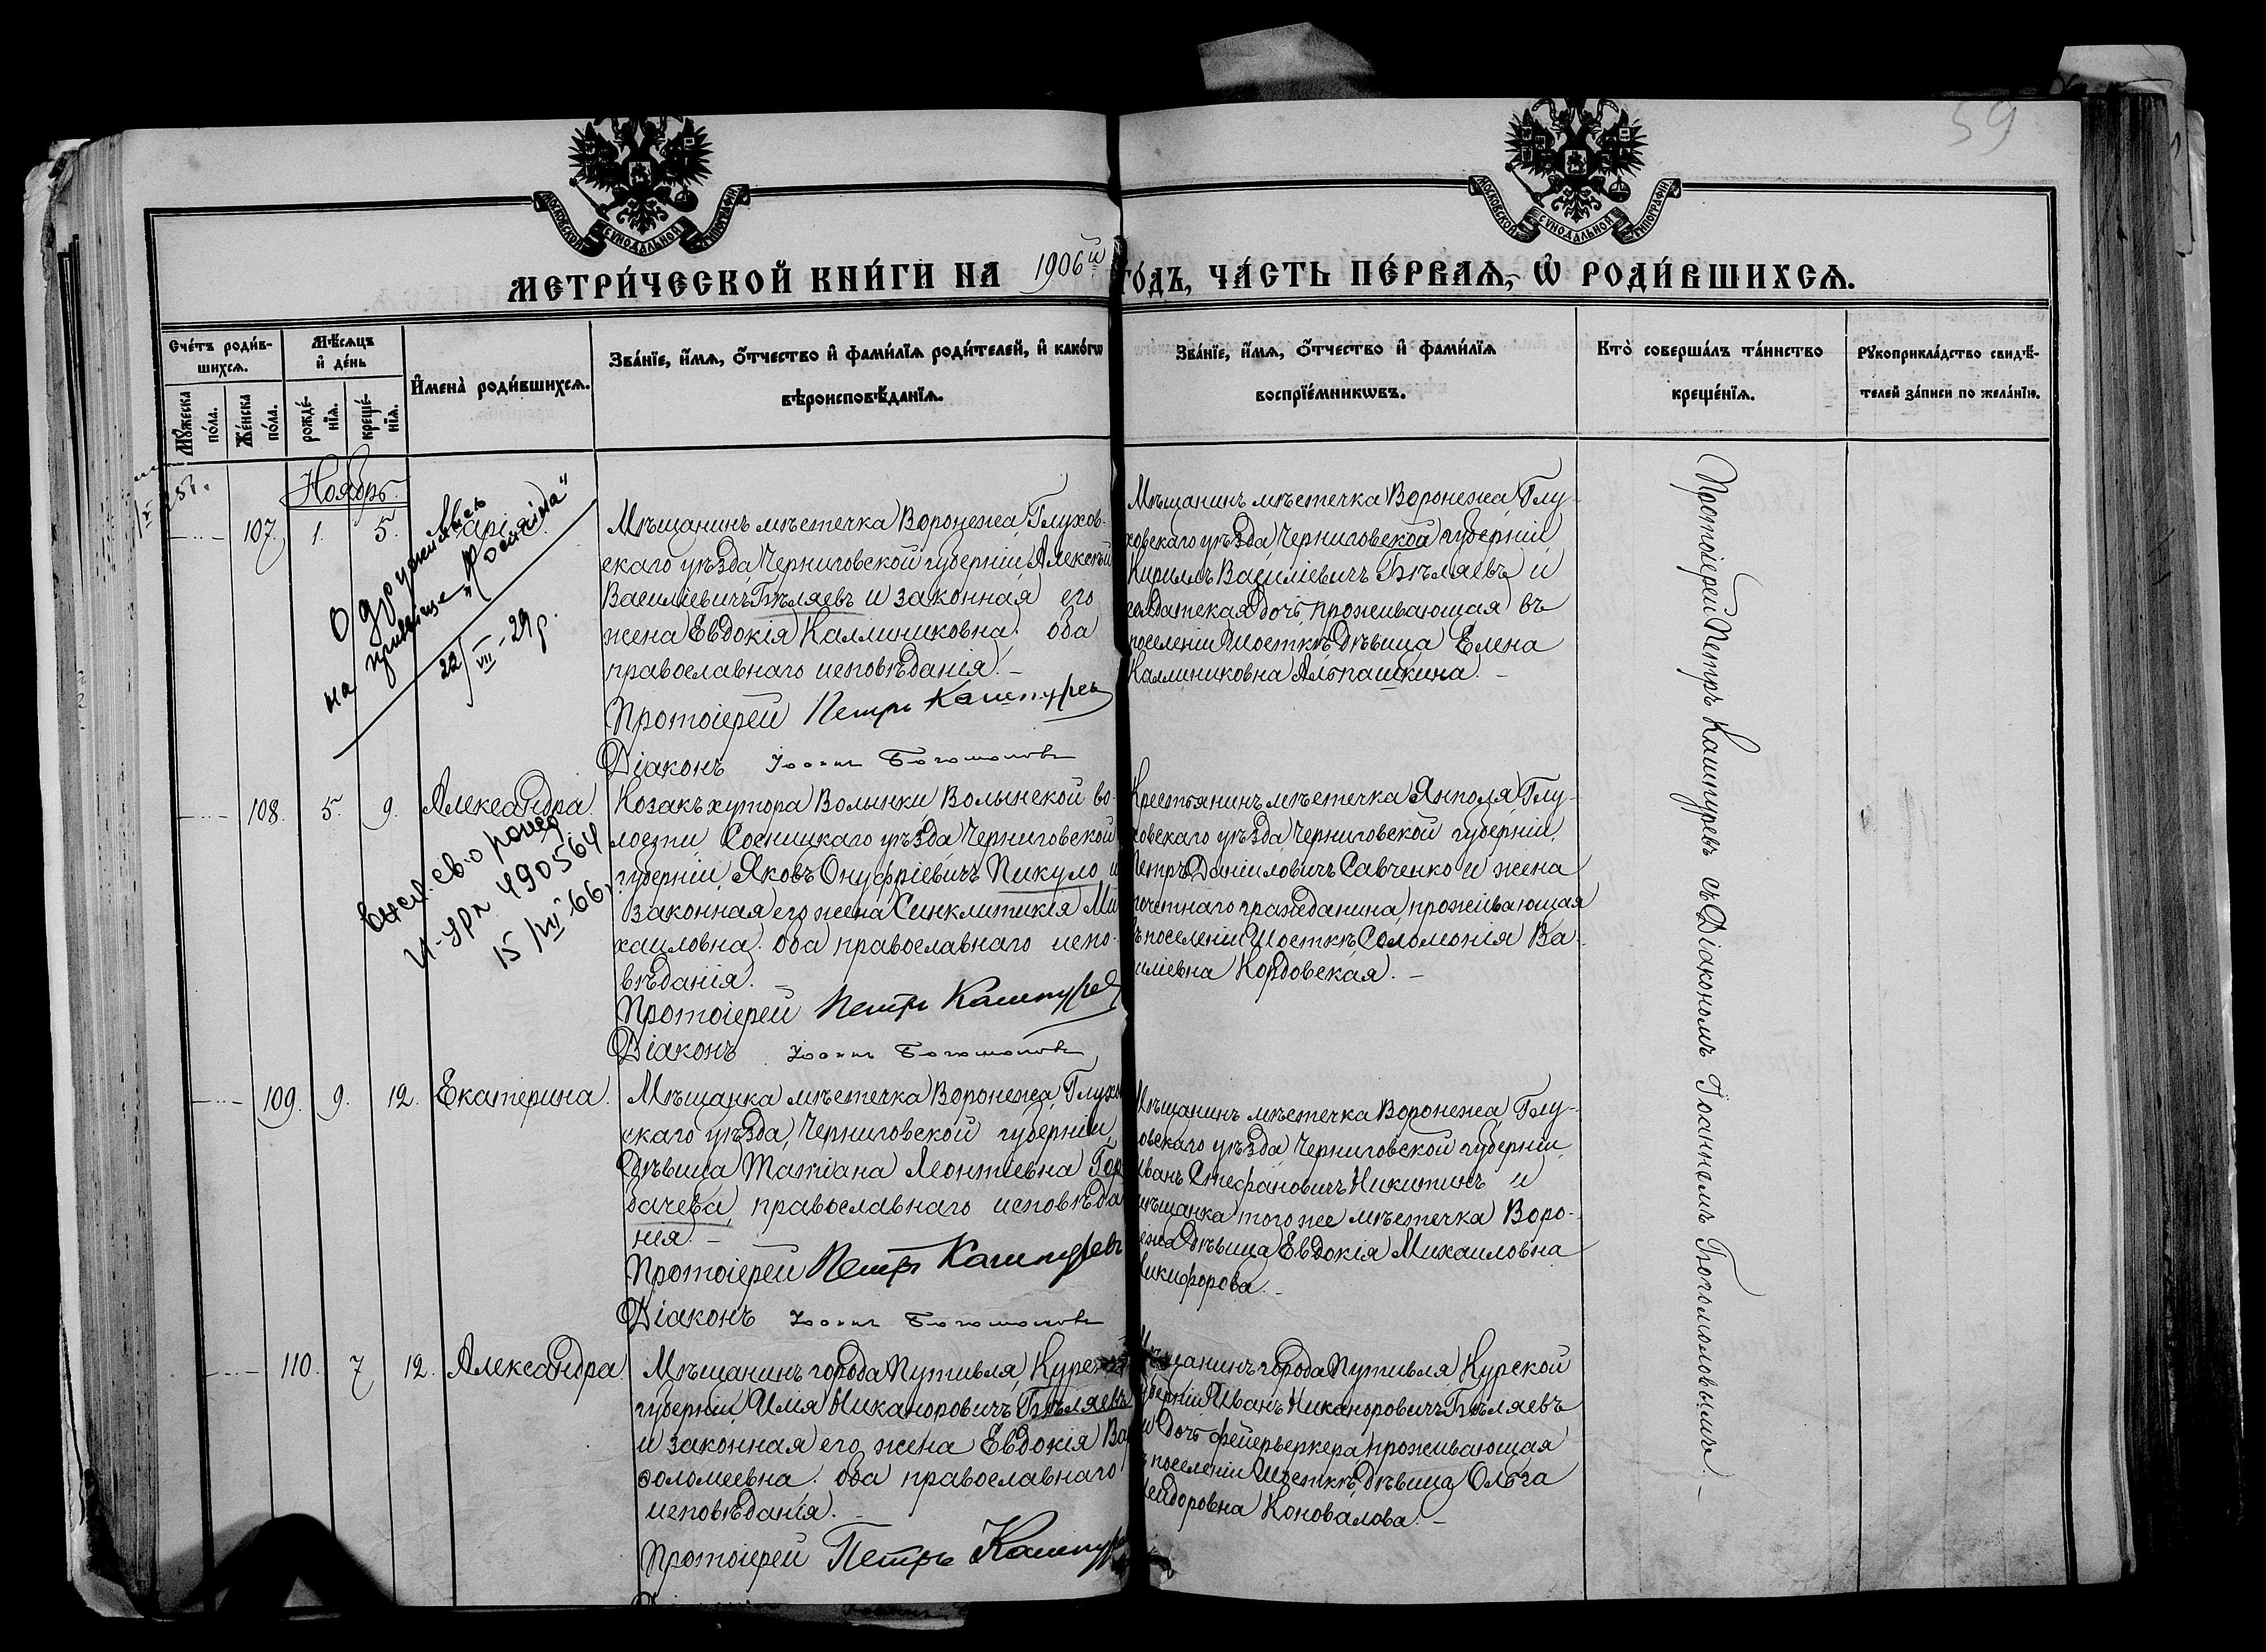 59
МОСКОВСКОЙ СѴНОДАЛЬНОЙ ТИПОГРАФІИ
МОСКОВСКОЙ СѴНОДАЛЬНОЙ ТИПОГРАФІИ
МЕТРИ́ЧЕСКОЙ КНИ́ГИ НА 1906й ГО́ДЪ, ЧА́СТЬ ПЕ́РВАѦ, Ѡ҆ РОДИ́ВШИХСѦ.
Сче́тъ роди́в-
шихсѧ.
Мѣ́сѧцъ
и҆ де́нь
И҆мена̀ роди́вшихсѧ.
Зва́нїе, и҆́мѧ, ѻ҆́тчество и҆ фами́лїѧ роди́телей, и҆ како́гѡ
вѣроисповѣ́данїѧ.
Зва́нїе, и҆́мѧ, ѻ҆́тчество и҆ фами́лїѧ
воспрїе́мникѡвъ.
Кто̀ соверша́лъ та́инство
креще́нїѧ.
Рꙋкоприкла́дство свидѣ́-
телей за́писи по жела́нїю.
Мꙋ́жеска
по́ла.
Же́нска
по́ла.
рожде́-
нїѧ.
креще́-
нїѧ.
Ноябрь.
107. 1. 5. Марія.
22/VII-29 р.
Мѣщанинъ мѣстечка Воронежа, Глухов-
скаго уѣзда Черниговской губерніи, Алексѣй
Василіевичъ Бѣляевъ и законная его
жена Евдокія Каллиниковна. оба
православнаго исповѣданія. –
Протоіерей Петръ Кашпуревъ
Діаконъ Іоаннъ Богомоловъ
Мѣщанинъ мѣстечка Воронежа, Глу-
ховскаго уѣзда Черниговской губерніи,
Кириллъ Василіевичъ Бѣляевъ и
солдатская дочь проживающая въ
поселеніи Шосткѣ дѣвица Елена
Каллиниковна Альпашкина. –
108. 5. 9. Александра.
490564
15/VII-66
Козакъ хутора Волынки Волынской во-
лости, Сосницкаго уѣзда Черниговской
губерніи, Яковъ Онуфріевичъ Пикуло и
законная его жена Синклитикія Ми-
хаиловна. оба православнаго испо-
вѣданія. –
Протоіерей Петръ Кашпуревъ
Діаконъ Іоаннъ Богомоловъ
Крестьянинъ мѣстечка Янполя, Глу-
ховскаго уѣзда Черниговской губерніи,
Петръ Даниловичъ Савченко и жена
почетнаго гражданина, проживающая
въ поселеніи Шосткѣ Соломонія Ва-
силіевна Кордовская. –
109. 9. 12. Екатерина.
Мѣщанка мѣстечка Воронежа, Глухов-
скаго уѣзда, Черниговской губерніи,
дѣвица Татіана Леонтіевна Гор-
бачева, православнаго исповѣда-
нія. –
Протоіерей Петръ Кашпуревъ
Діаконъ Іоаннъ Богомоловъ
Мѣщанинъ мѣстечка Воронежа, Глу-
ховскаго уѣзда, Черниговской губерніи,
Иванъ Стефановичъ Никитинъ и
мѣщанка того же мѣстечка Воро-
нежа дѣвица Евдокія Михаиловна
Никифорова. –
110. 7 12. Александра.
Мѣщанинъ города Путивля, Курской
губерніи, Илія Никаноровичъ Бѣляевъ
и законная его жена Евдокія Вар-
ѳоломеевна. оба православнаго
исповѣданія. –
Протоіерей Петръ Кашпуревъ
Мѣщанинъ города Путивля, Курской
губерніи Иванъ Никаноровичъ Бѣляевъ
и дочь фейерверкера, проживающая
въ поселеніи Шосткѣ, дѣвица Ольга
Коновалова. –
Протоіерей Петръ Кашпуревъ съ Діакономъ Іоанномъ Богомоловымъ. –